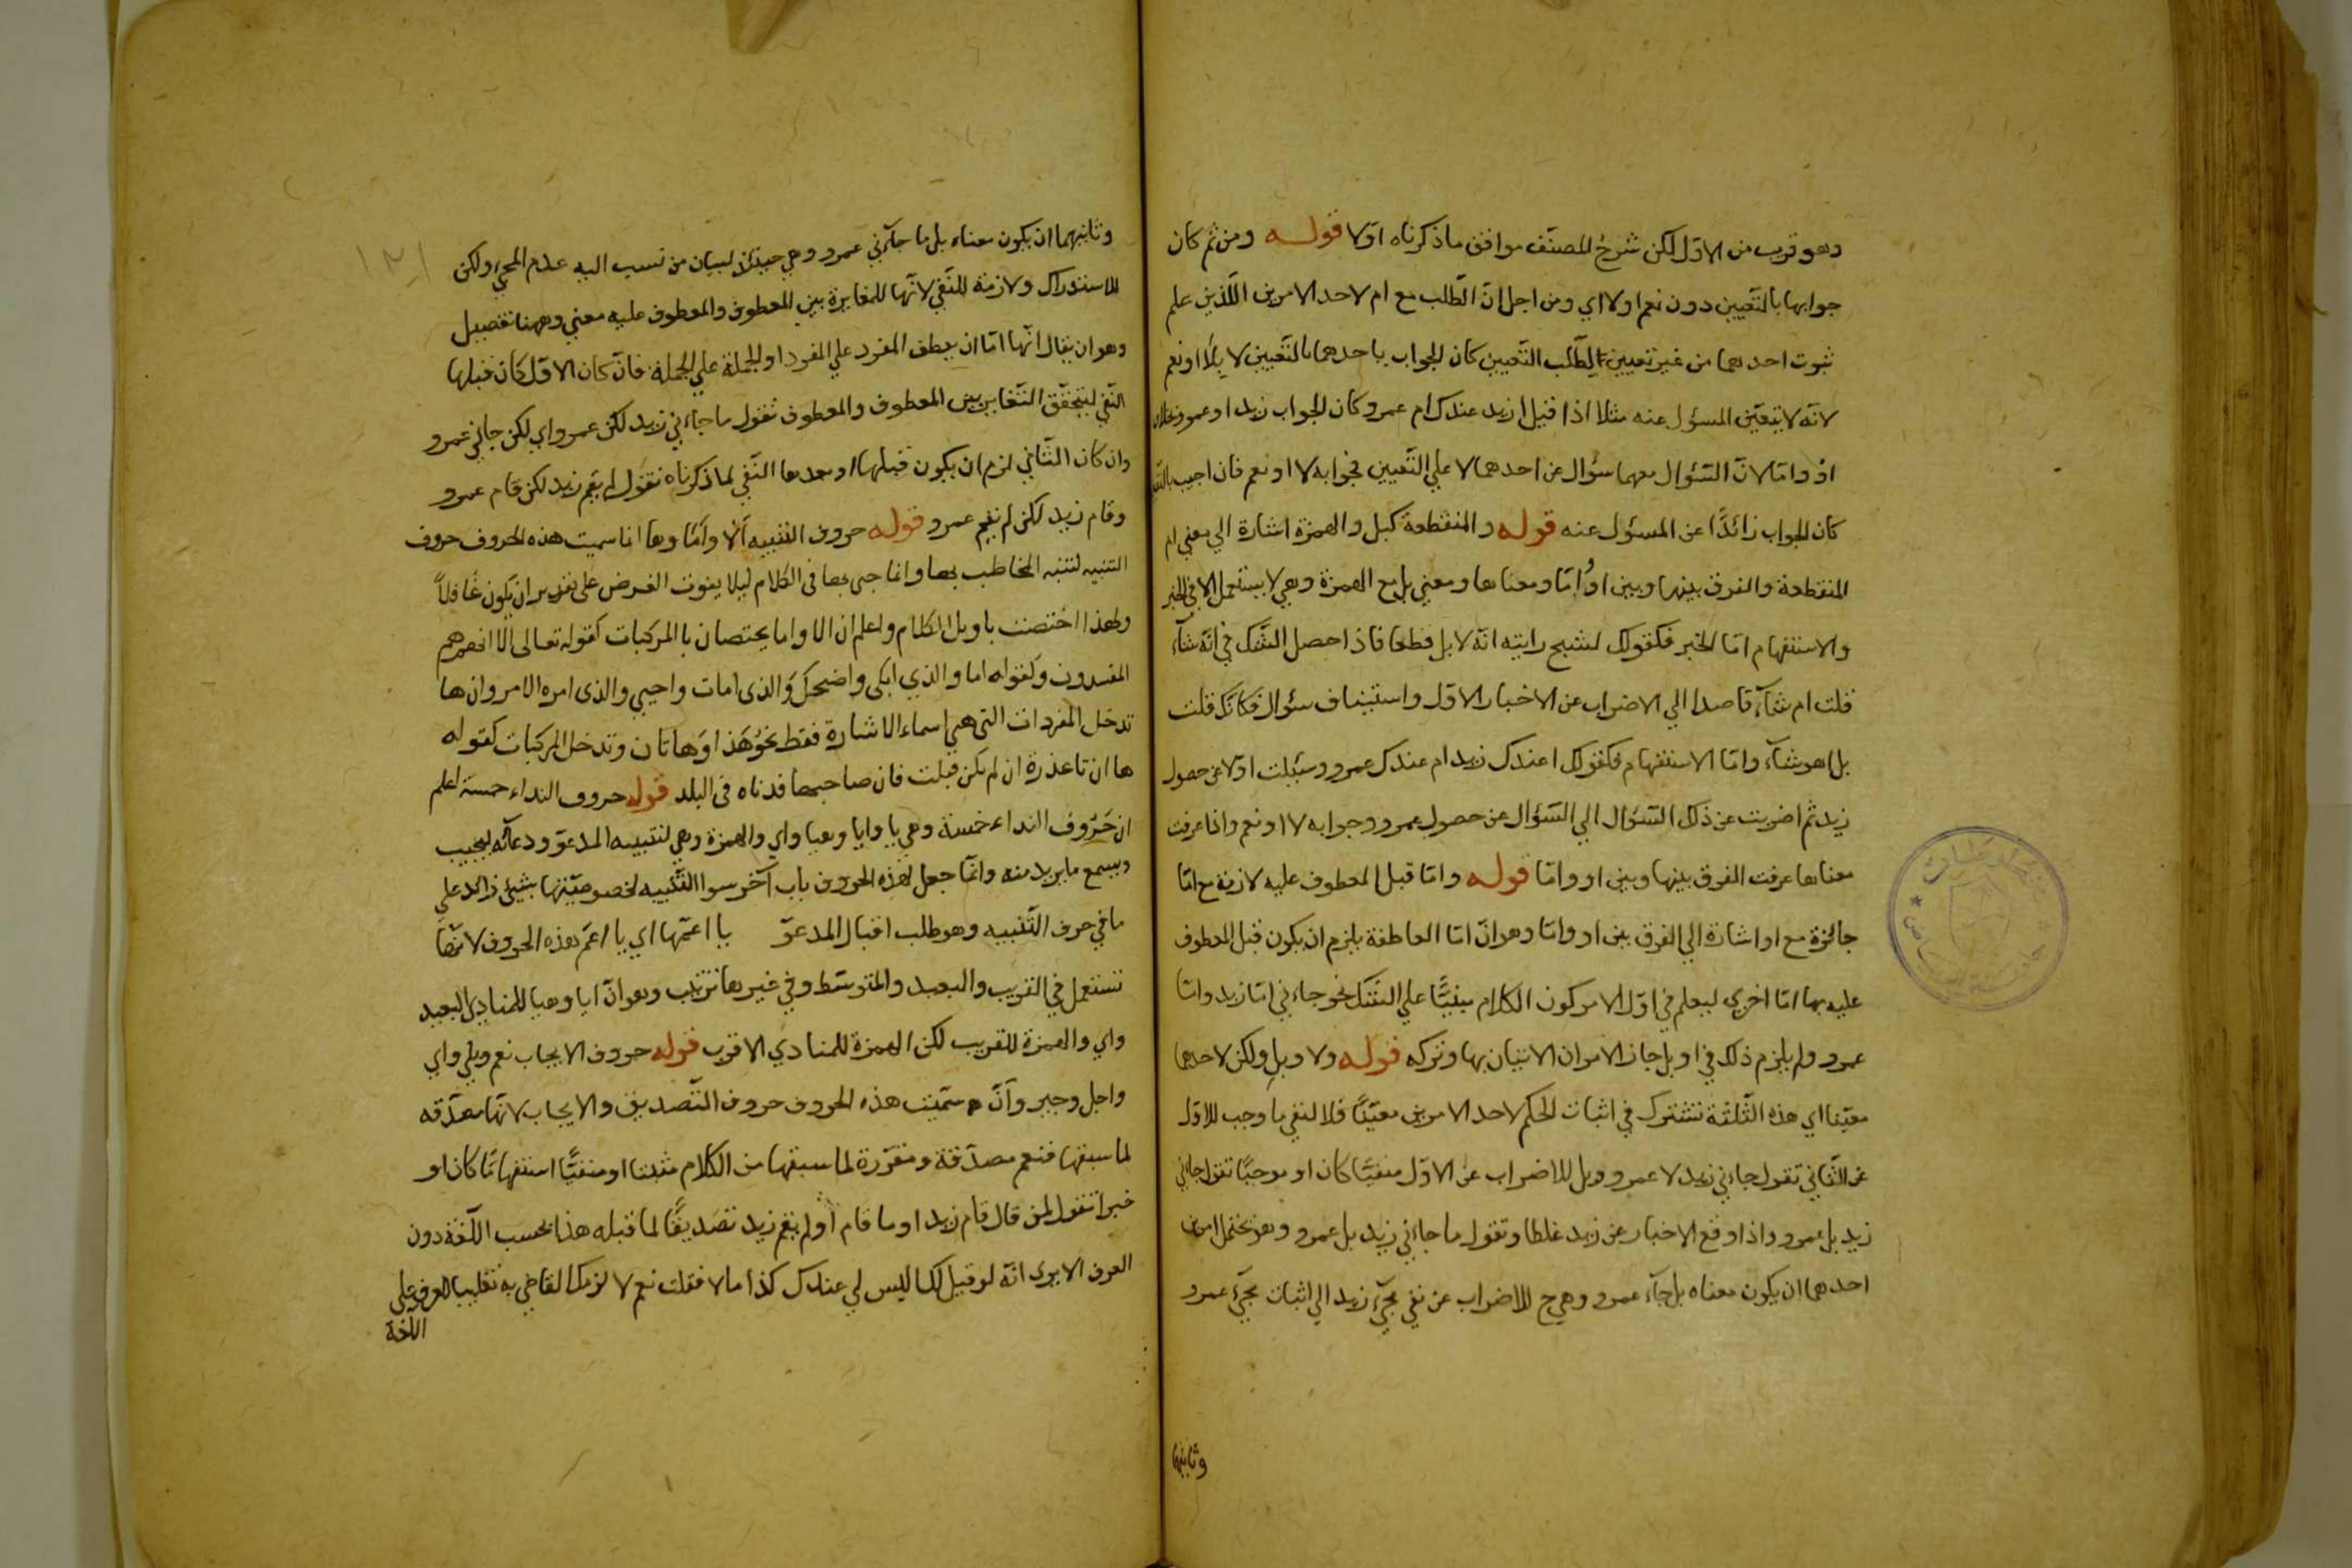 وهو قريب من الاوّل لكن شرح المصنّف موافق ما ذكرناه اوّلا قوله ومن ثم كان
جوابها بالتّعيين دون نعم اولا اي ومن اجل انّ الطّلب مع ام لاحد الامرين اللّذين علم
ثبوت احدهما من غير تعيين لطّلب التّعيين كان الجواب باحدهما بالتّعيين لا بلا او نعم
لانّه لا يتعيّن المسؤل عنه مثلا اذا قيل ازيد عندك ام عمرو كان الجواب زيد او عمرو بخلاف
اوْ وامّا لانّ السّؤال معهما سؤال عن احدهما لا علي التّعيين فجوابه لا او نعم فان اجيب
كان الجواب زائدًا عن المسؤل عنه قوله والمنقطعة كبل والهمزة اشارة الي معني ام
المنقطعة والفرق بينها وبين اوْ امّا ومعناها ومعني بل مع الهمزة وهي لا يستعمل الا في الخبر
والاستفهام امّا الخبر فكقولك لشبح رايته انّه لابل قطعا فاذا حصل الشّك في انّه شآء
قلت ام شآء قاصدا الي الاضراب عن الاخبار الاوّل واستيناف سئوال فكانّك قلت
بل اهو شآء وامّا الاستفهام فكقولك اعندك زيد ام عندك عمرو وسئلت اوّلا عن حصول
زيد ثم اضربت عن ذلك السّؤال الي السّؤال عن حصول عمرو وجوابه لا او نعم واذا عرفت
معناها عرفت الفرق بينها وبين او وامّا قوله وامّا قبل المعطوف عليه لازمة مع امّا
جائزة مع او اشارة الي الفرق بين او وامّا وهو انّ امّا العاطفة يلزم ان يكون قبل المعطوف
عليه بها امّا اخري ليعلم في اوّل الامر كون الكلام مبنيًّا علي الشّك نحو جاءني امّا زيد وامّا
عمرو ولم يلزم ذلك في او بل جاز الامران الاتيان بها وتركه قوله ولا وبل ولكن لاحدهما
معيّنا اي هذه الثّلثة تشترك في اثبات الحكم لاحد الامرين معيّنًا فلا لنفي ما وجب للاوّل
عن الثّاني تقول جاءني زيد لا عمرو وبل للاضراب عن الاوّل منفيًّا كان او موجبًا تقول جاءني
زيد بل عمرو واذا وقع الاخبار عن زيد غلطا وتقول ما جاءني زيد بل عمرو وهو يحتمل امرين
احدهما ان يكون معناه بل جآء عمرو وهي ح للاضراب عن نفي مجيء زيد الي اثبات مجيء عمرو
وثانيهما
وثانيهما ان يكون معناه بل ما جآءني عمرو وهي حينئذ لبيان من نسب اليه عدم المجيء ولكن
للاستدراك ولازمة للنّفي لانّها للمغايرة بين المعطوف والمعطوف عليه معني وههنا تفصيل
وهو ان يقال انّها امّا ان يعطف المفرد علي المفرد او الجملة علي الجملة فان كان الاوّل كان قبلها
النّفي ليتحقّق التّغاير بين المعطوف والمعطوف تقول ما جاءني زيد لكن عمرو اي لكن جاني عمرو
وان كان الثّاني لزم ان يكون قبلها او بعدها النّفي لما ذكرناه تقول لم يقم زيد لكن قام عمرو
وقام زيد لكن لم يقم عمرو قوله حروف التنبيه ألا وأمّا وها انما سميت هذه الحروف حروف
التنبيه لتنبه المخاطب بها وانما جيء بها في الكلام ليلا يفوت الغرض علي تقدير ان يكون غافلاً
ولهذا اختصت باويل الكلام واعلم ان الا واما يختصان بالمركبات كقوله تعالى الا انهم هم
المفسدون وكقوله اما والذي ابكى واضحك والذى امات واحيي والذى امره الامر وان ها
تدخل المفردات التى هي اسماء الاشارة فقط نحوُ هَذا وَهاتان وتدخل المركبات كقوله
ها ان تا عذرة ان لم يكن قبلت فان صاحبها قد تاه فى البلد قوله حروف النداء خمسة اعلم
ان حَرُوف النداء خمسة وهي يا وايا وهيا واي والهمزة وهي لتنبيه المدعوّ ودعآئه ليجيب
ويسمع ما يريد منه وانّما جعل لهذه الحروف باب آخر سوا التّنبيه لخصوصيّتها بشيئ زائد علي
ما في حرف التّنبيه وهو طلب اقبال المدعوّ يا اعمّها اي يا اعمّ هذه الحروف لانّها
تستعمل في القريب والبعيد والمتوسّط وفي غيرها ترتيب وهو انّ ايا وهيا للمنادي البعيد
واي والهمزة للقريب لكن الهمزة للمنادي الاقرب قوله حروف الايجاب نعم وبلي واي
واجل وجير وانّ سمّيت هذه الحروف حروف التّصديق والايجاب لانّها مصدّقه
لما سبقها فنعم مصدّقة ومقرّرة لما سبقها من الكلام مثبتا او منفيًّا استفهامًا كان او
خبرا تقول لمن قال قام زيد او ما قام او لم يقم زيد تصديقًا لما قبله هذا بحسب اللّغة دون
العرف الا يري انّه لو قيل لك اليس لي عندك كذا مالا فقلت نعم لا لزمك القاضي به تغليبا للعرف علي
اللغة